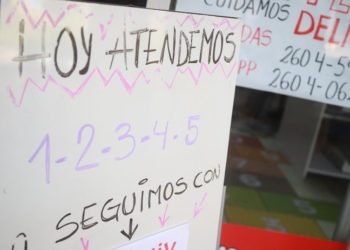 HOY ATENDEMOS
1-2-3-4-5
SEGUIMOS CON
CUIDAMOS
DELI
260 4-5
260 4-06